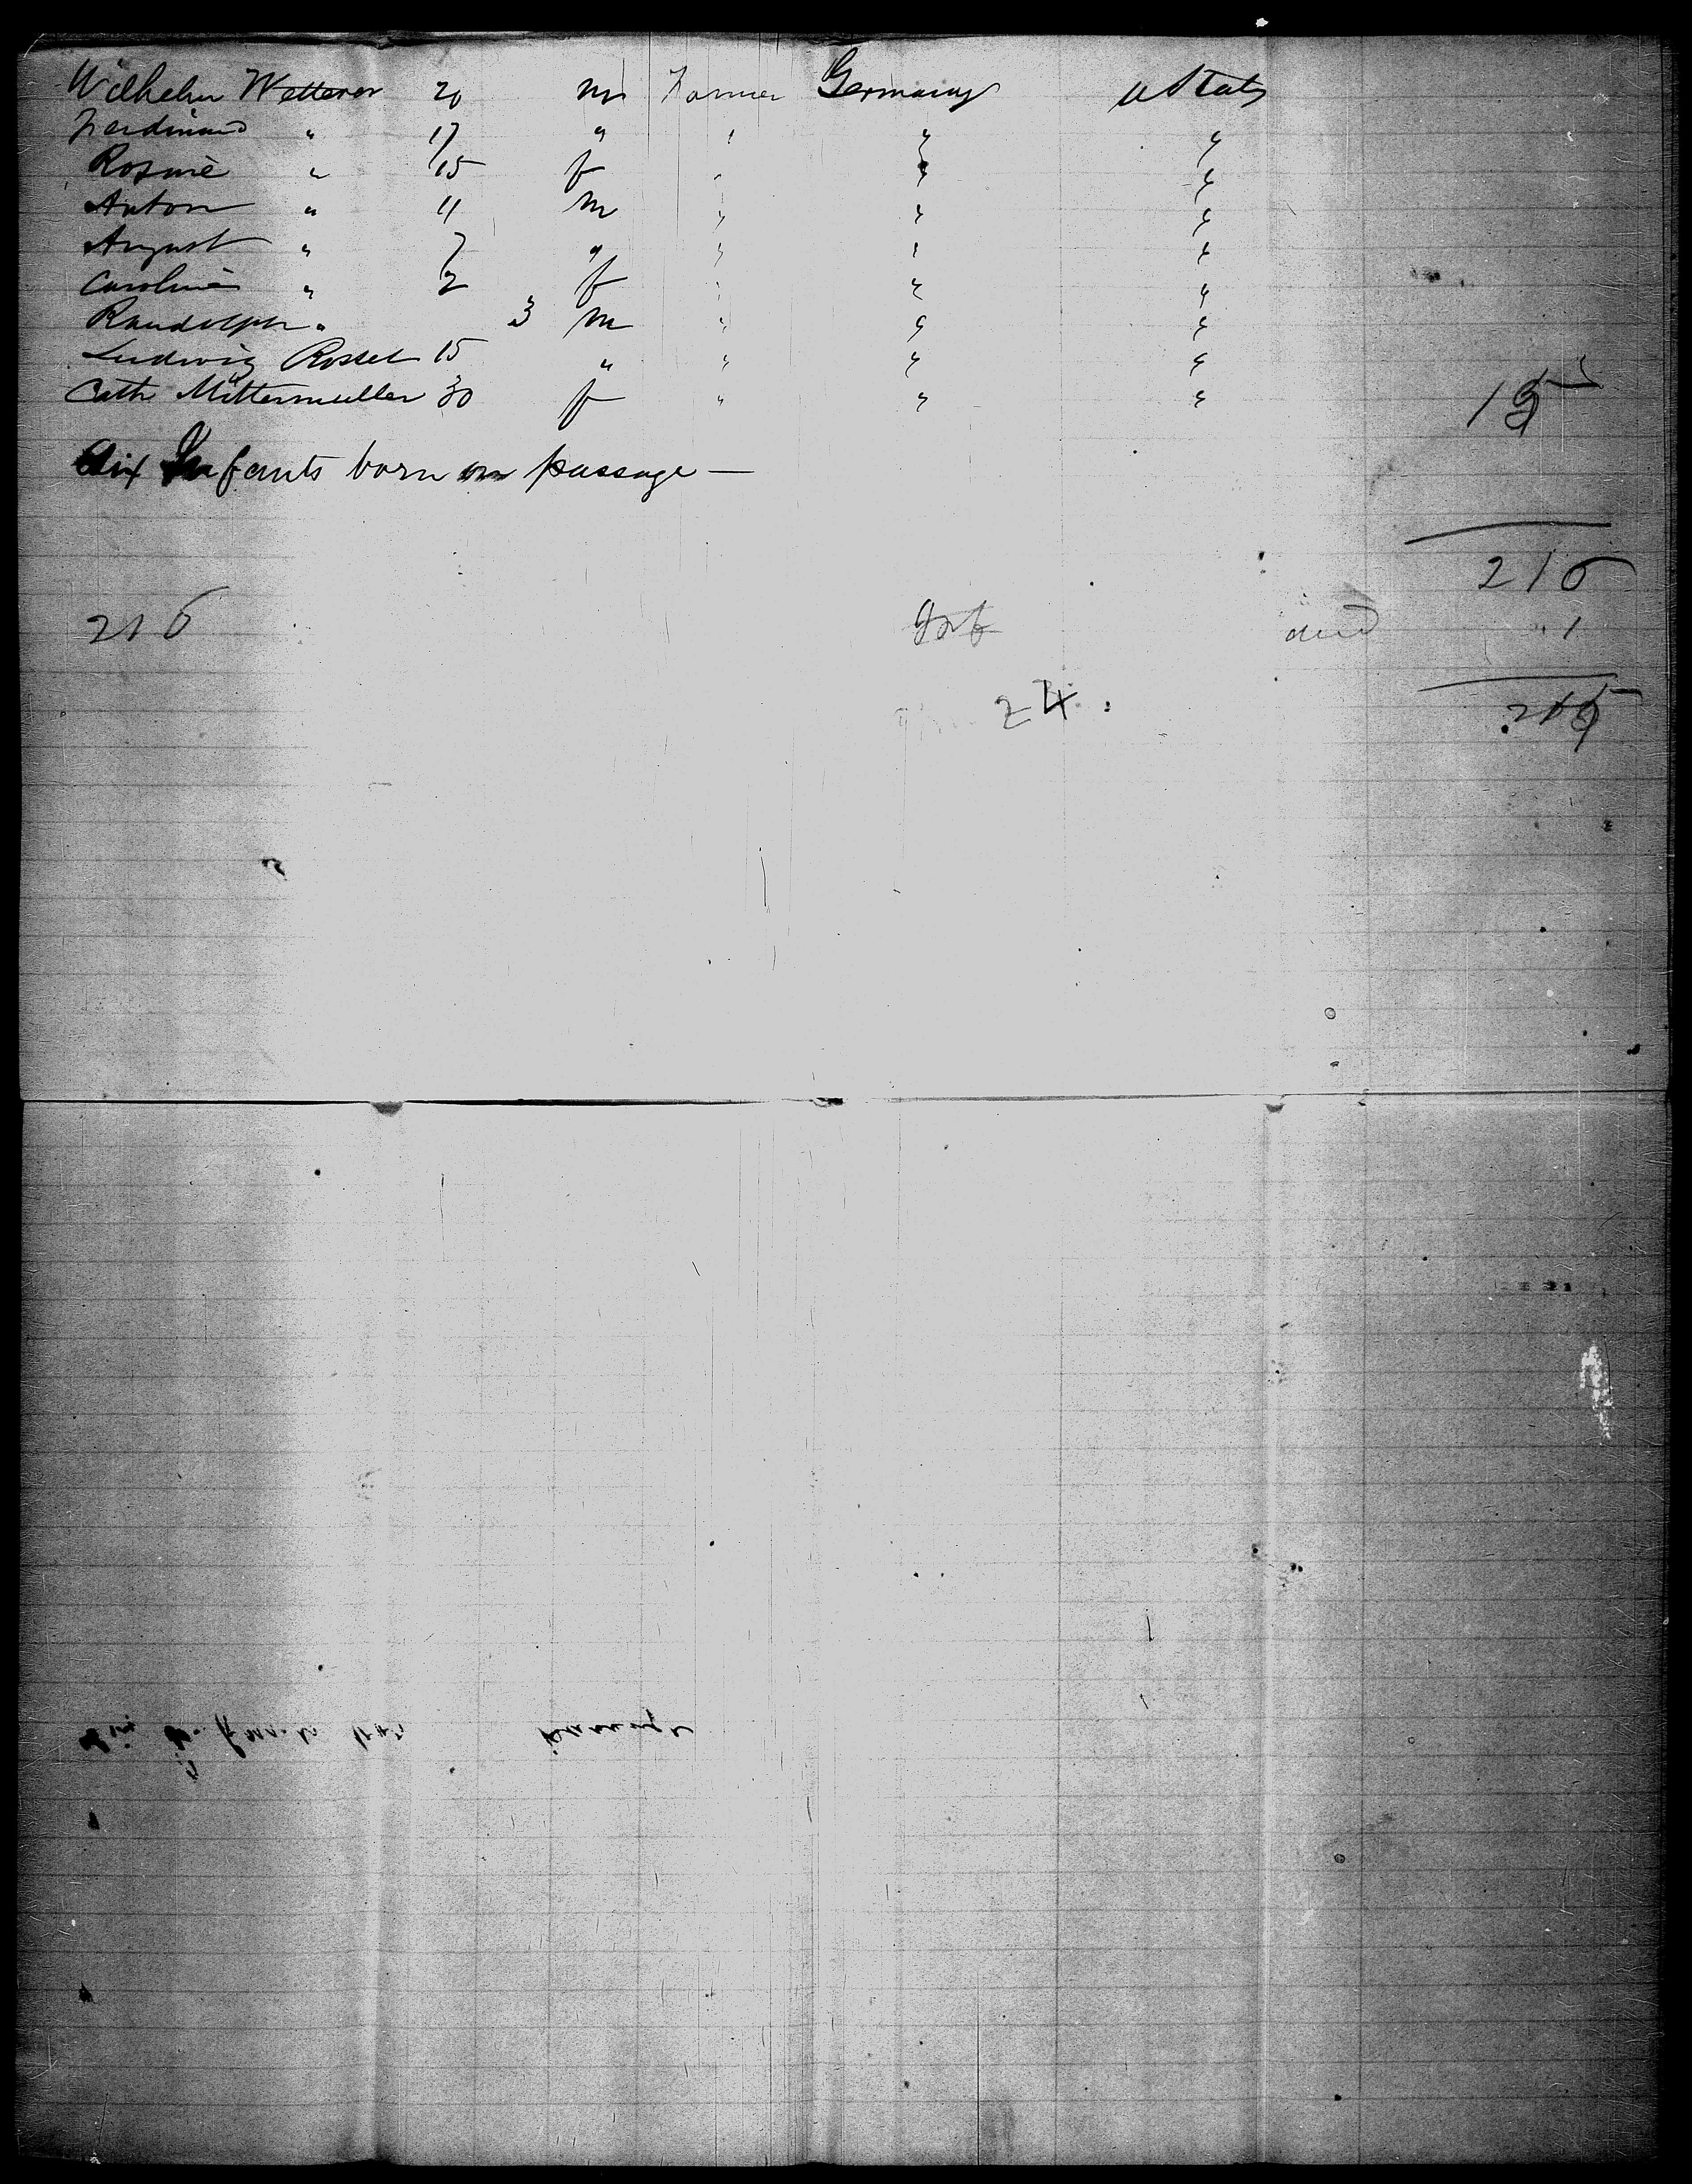 Wilhelm Wetterer 20 m Farmer Germany U Stats
Ferdinand " 17 " " " "
Rosine " 15 f " " "
Anton " 11 m " " "
August " 7 " " " "
Caroline " 2 f " " "
Raudolph " 3 m " " "
Ludwig Rosset 15 " " " "
Cath Mittermuller 30 f " " "
Six Infants born on passage —
216
216 Inf died 1
24
215